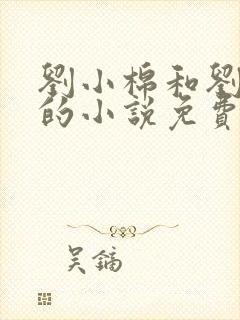 劉小棉和劉
的小說免費
吴鏑